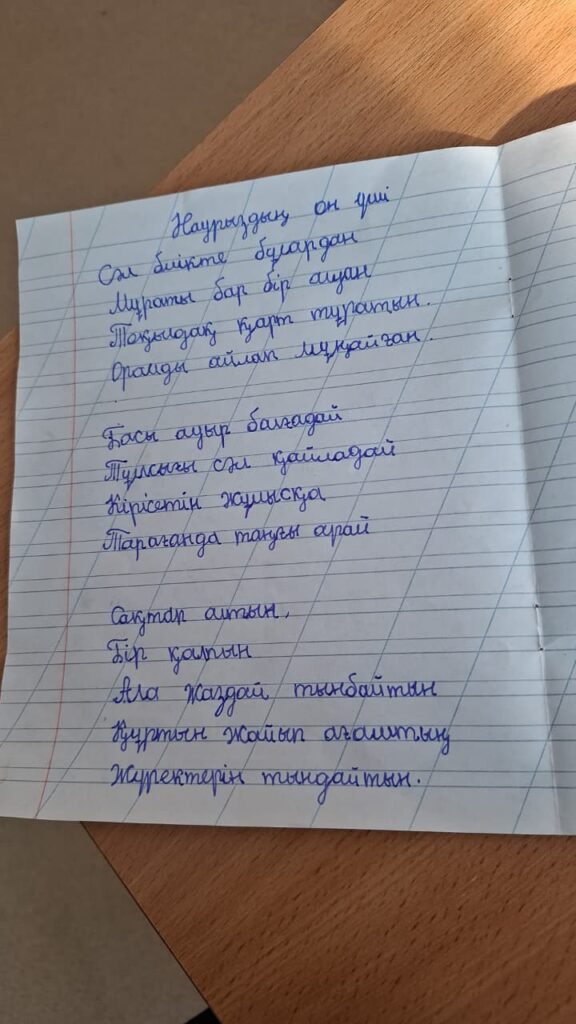 Наурыздың он үші
Сәл биікте бұлардан
Мұраты бар бір алуан
Тоқылдақ қарт тұратын.
Орамды айлап мұңайған.
Басы ауыр балғадай
Тұмсығы сәл қайладай
Кірісетін жұмысқа
Тарағанда таңғы арай
Сақтап алтын,
Бір қалпын
Ала жаздай тынбайтын
Құртын жойып ағаштың
Жүректерін тыңдайтын.